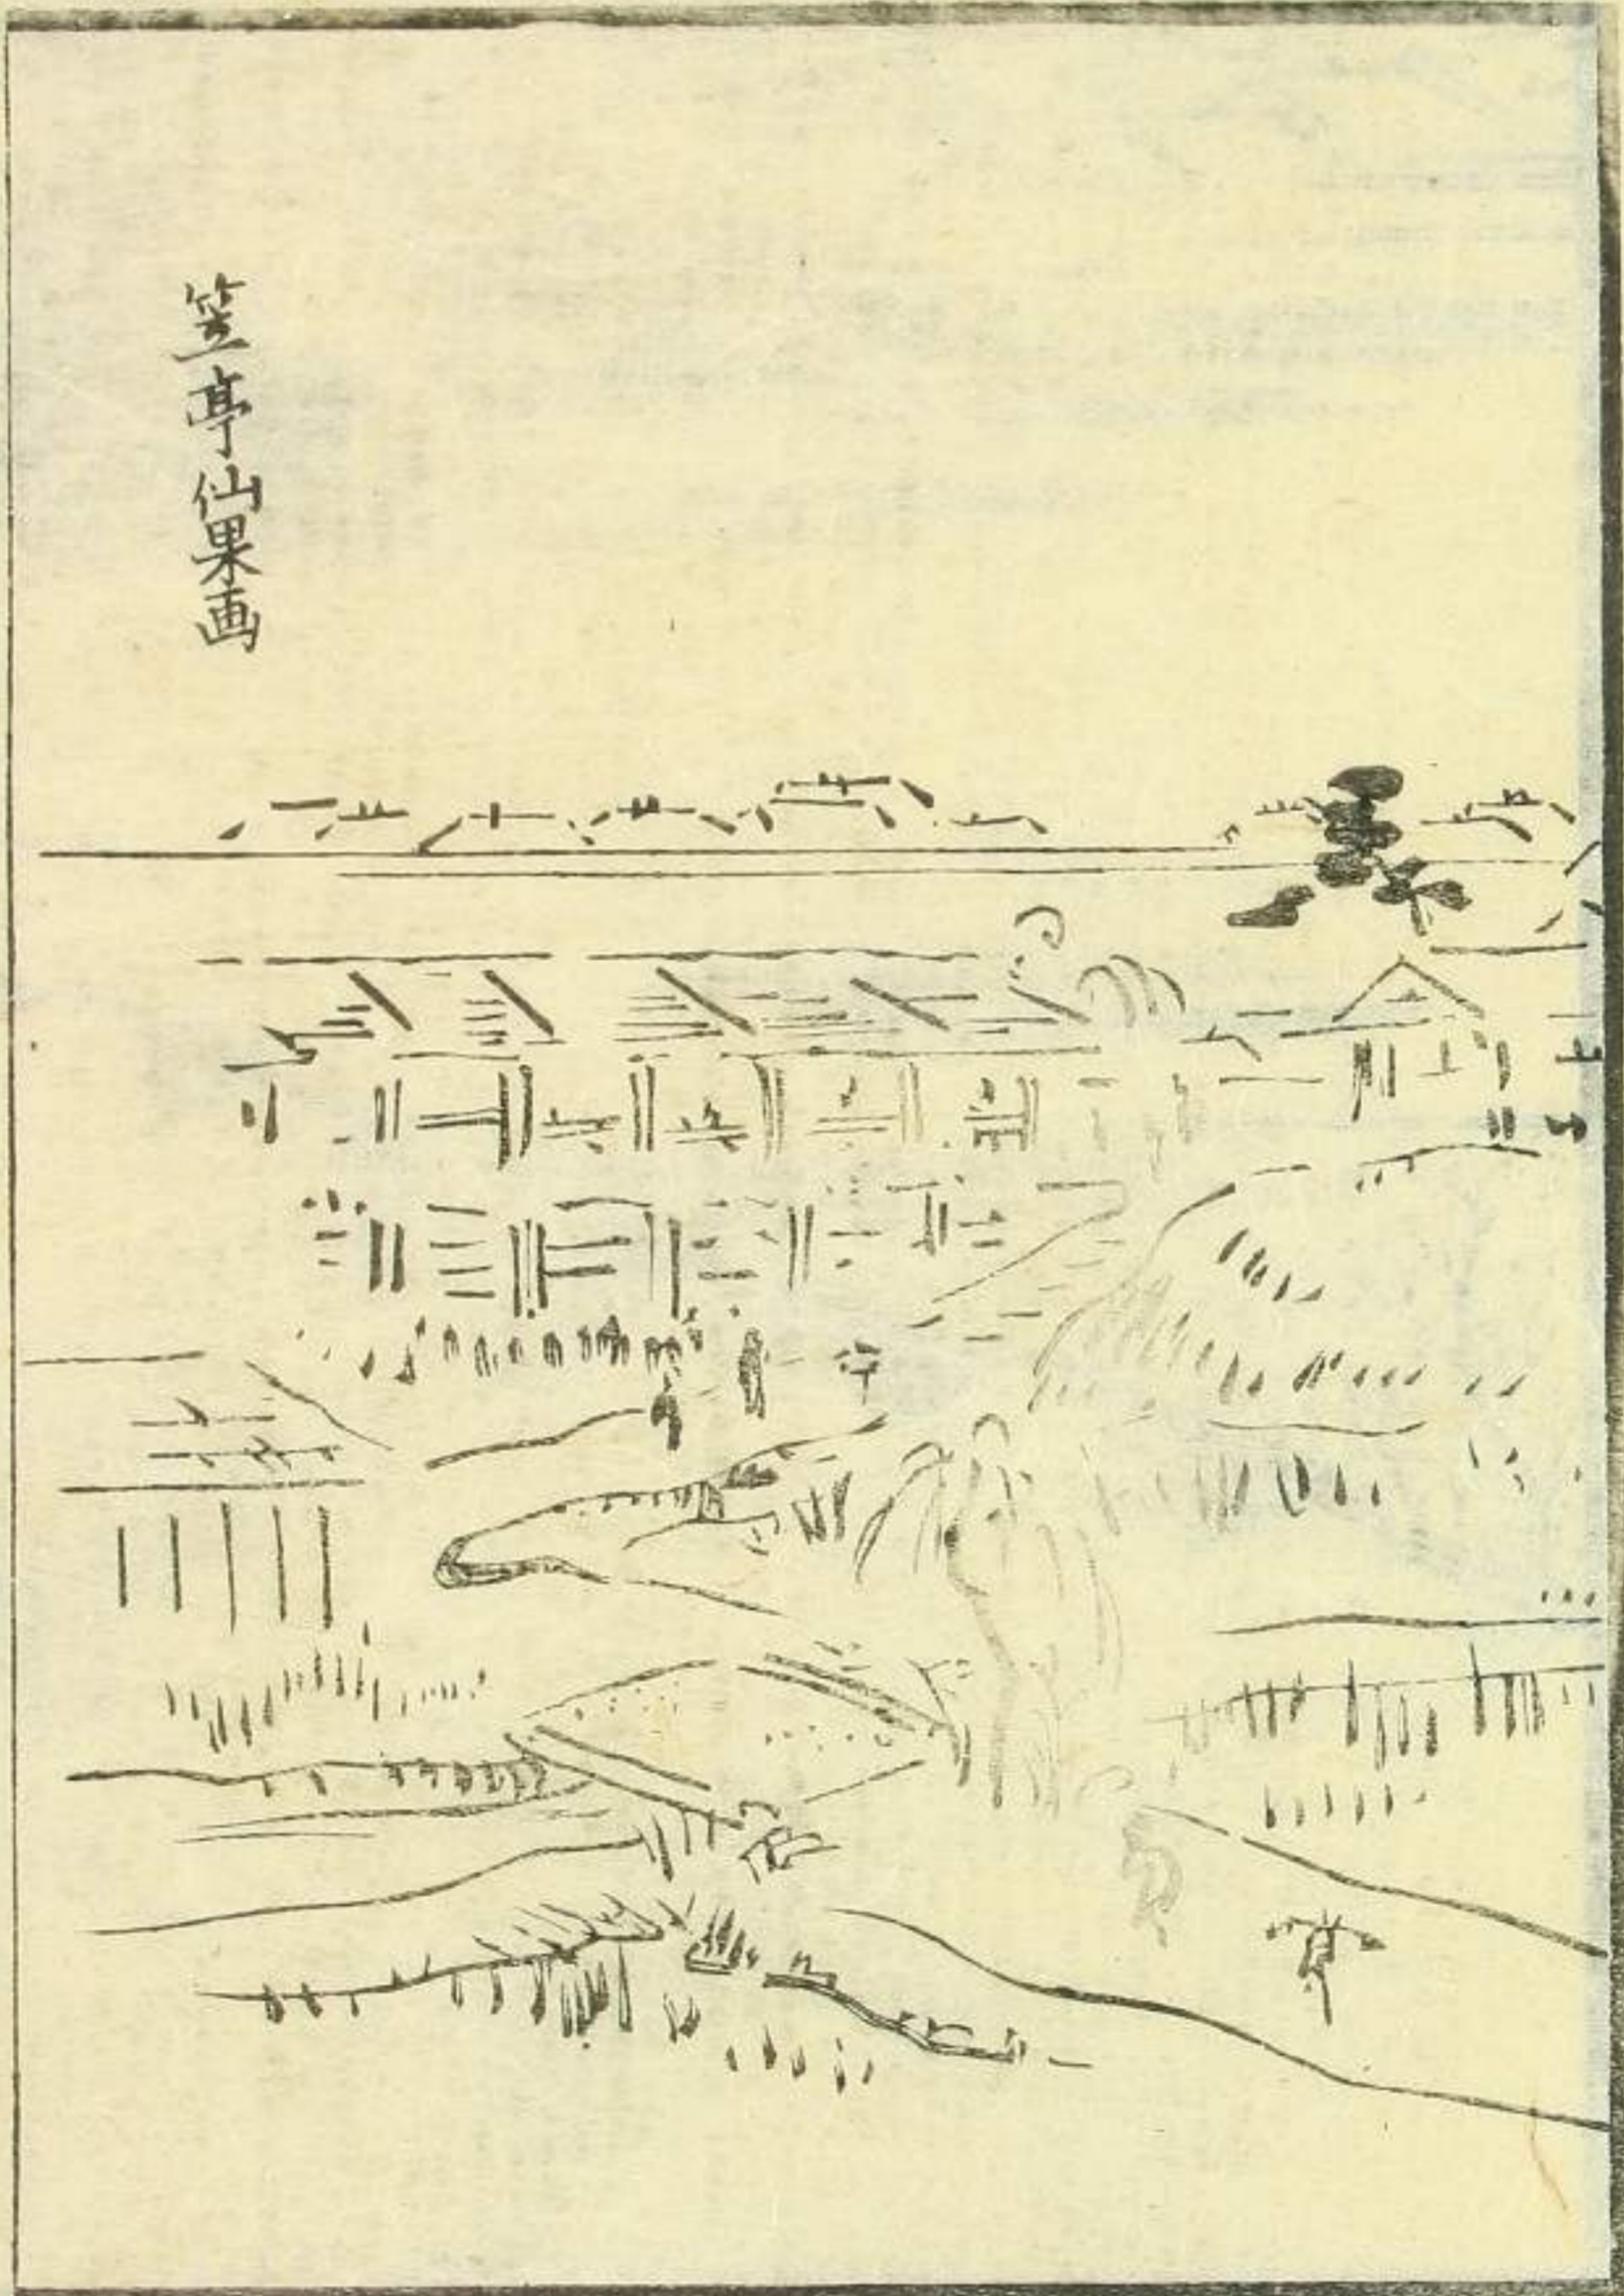 笠亭仙果画